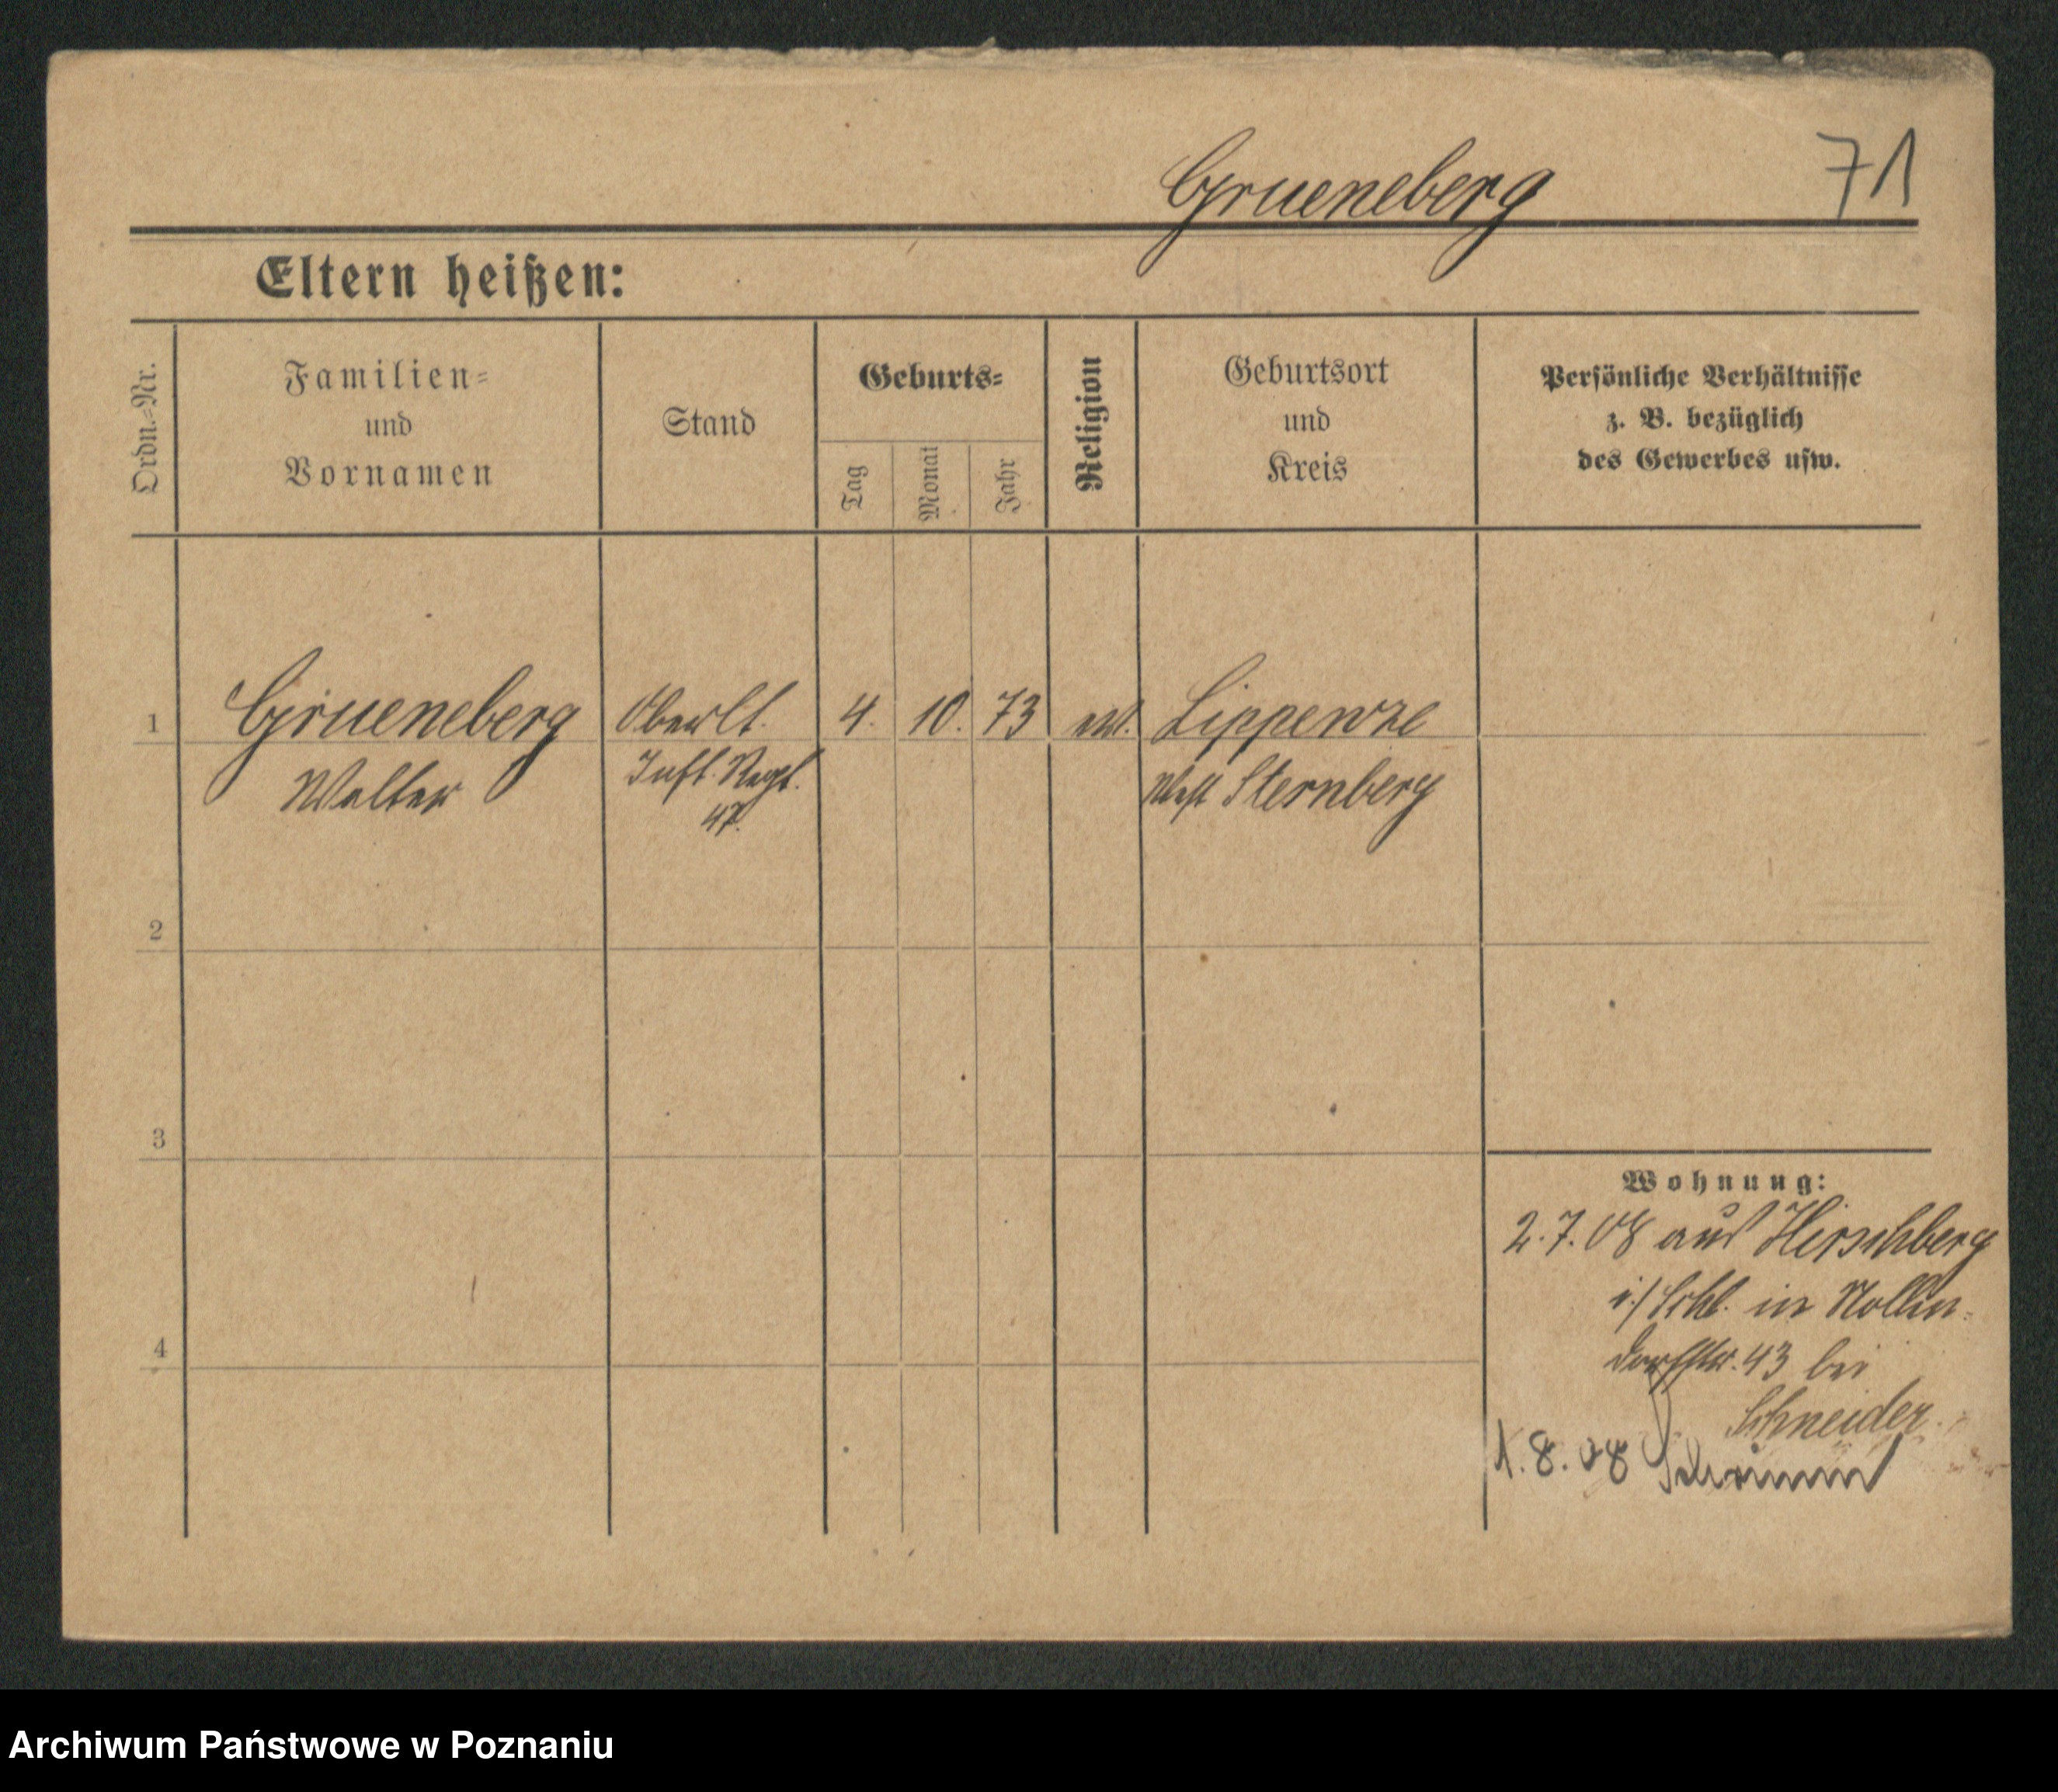 Grueneberg
71
Eltern heißen:
Ordn.-Nr.
Familien-
und
Vornamen
Stand
Geburts-
Tag
Monat
Jahr
Religion
Geburtsort
und
Kreis
Persönliche Verhältnisse
z. B. bezüglich
des Gewerbes usw.
1
Grueneberg Oberlt. 4. 10. 73
Walter Inft. Regt. West Sternberg
47.
2
3
4
Wohnung:
2.7.08 aus Hirschberg
i/Schl. in Nollen-
dorfstr. 43 bei
Schneider.
8.08 Schrimm
Archiwum Państwowe w Poznaniu